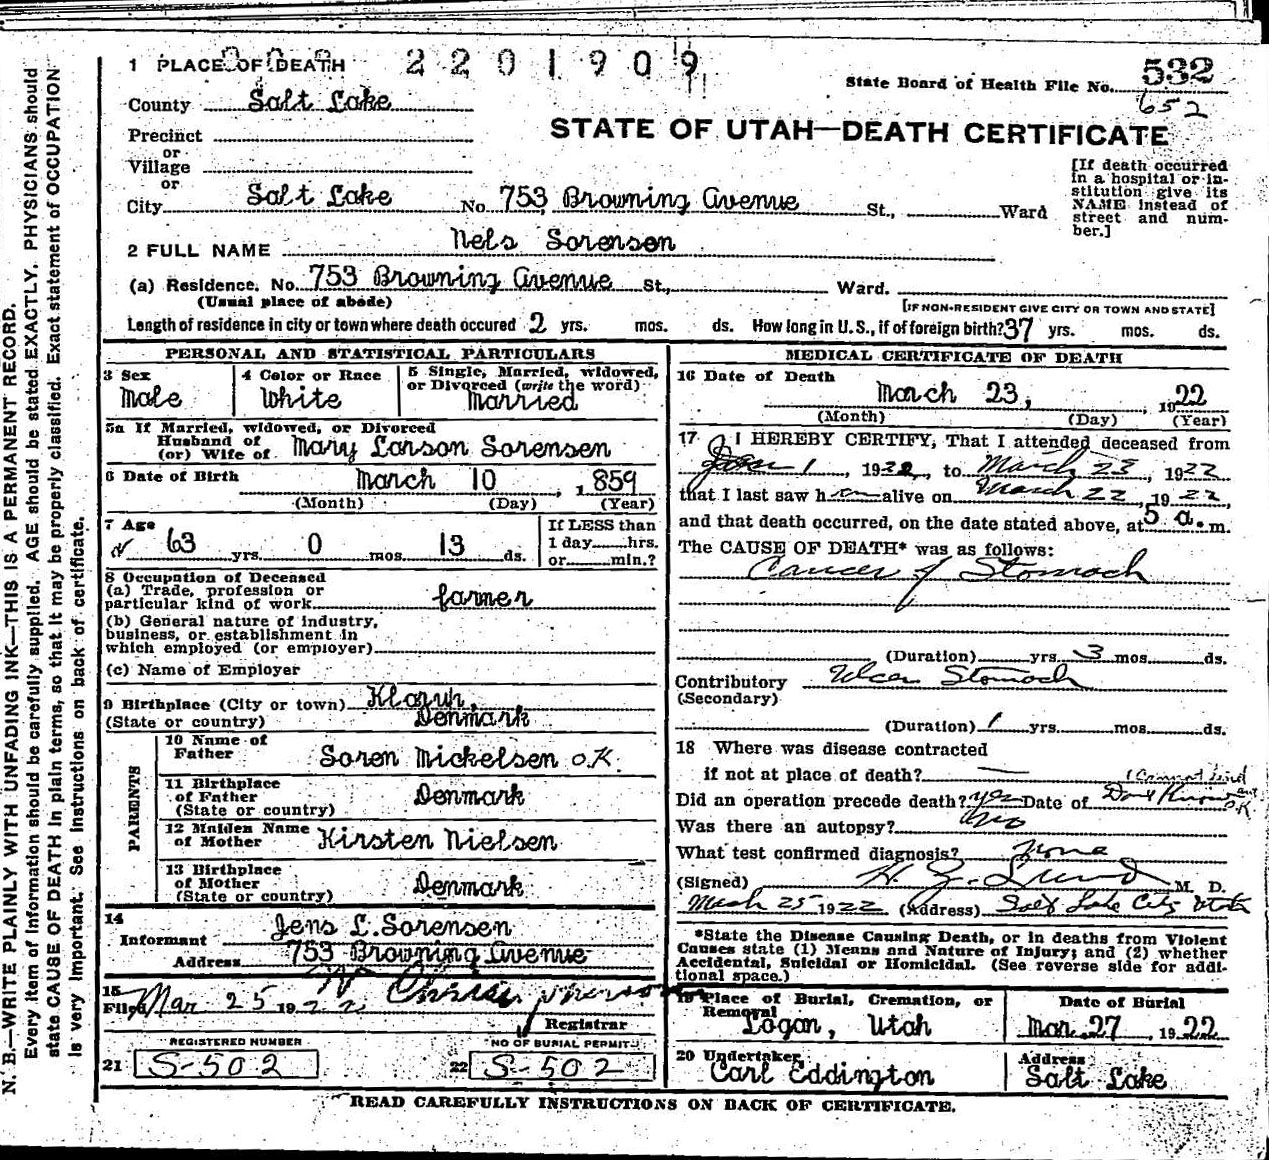 2201909
1 PLACE OF DEATH
State Board of Health File No. 532
652
County Salt Lake
STATE OF UTAH—DEATH CERTIFICATE
Precinct
or
Village
or
City Salt Lake No. 753 Browning Avenue St., Ward
[If death occurred in a hospital or institution give its NAME instead of street and number.]
2 FULL NAME Nels Sorensen
(a) Residence. No. 753 Browning Avenue St., Ward.
(Usual place of abode) [IF NON-RESIDENT GIVE CITY OR TOWN AND STATE]
Length of residence in city or town where death occured 2 yrs. mos. ds. How long in U.S., if of foreign birth? 37 yrs. mos. ds.
PERSONAL AND STATISTICAL PARTICULARS
3 Sex
Male
4 Color or Race
White
5 Single, Married, widowed,
or Divorced (write the word)
Married
5a If Married, widowed, or Divorced
Husband of
(or) Wife of Mary Larson Sorensen
6 Date of Birth March 10, 1859
(Month) (Day) (Year)
7 Age
63 yrs. 0 mos. 13 ds.
If LESS than
1 day hrs.
or min.?
8 Occupation of Deceased
(a) Trade, profession or
particular kind of work farmer
(b) General nature of industry,
business, or establishment in
which employed (or employer)
(c) Name of Employer
9 Birthplace (City or town)
(State or country) Denmark
PARENTS
10 Name of
Father Soren Mickelsen O.K.
11 Birthplace
of Father Denmark
(State or country)
12 Maiden Name
of Mother Kirsten Nielsen
13 Birthplace
of Mother Denmark
(State or country)
14
Informant Jens L. Sorensen
Address 753 Browning Avenue
15
Filed Mar 25 1922
Registrar
REGISTERED NUMBER
21 S-502
NO OF BURIAL PERMIT
22 S-502
MEDICAL CERTIFICATE OF DEATH
16 Date of Death
March 23, 1922
(Month) (Day) (Year)
17 I HEREBY CERTIFY, That I attended deceased from
Jan 1, 1922, to March 23, 1922
that I last saw h alive on March 22, 1922
and that death occurred, on the date stated above, at 5 a. m.
The CAUSE OF DEATH* was as follows:
Cancer of Stomach
(Duration) yrs. 3 mos. ds.
Contributory Ulcer Stomach
(Secondary)
(Duration) 1 yrs. mos. ds.
18 Where was disease contracted
if not at place of death? —
(Cannot find out
Did an operation precede death? yes Date of Dont Know O.K
Was there an autopsy? No
What test confirmed diagnosis? None
(Signed) M. D.
March 25 1922 (Address) Salt Lake City Utah
*State the Disease Causing Death, or in deaths from Violent
Causes state (1) Means and Nature of Injury; and (2) whether
Accidental, Suicidal or Homicidal. (See reverse side for additional space.)
19 Place of Burial, Cremation, or
Removal
Logan, Utah
Date of Burial
Mar. 27, 1922
20 Undertaker
Carl Eddington
Address
Salt Lake
READ CAREFULLY INSTRUCTIONS ON BACK OF CERTIFICATE.
N. B.—WRITE PLAINLY WITH UNFADING INK—THIS IS A PERMANENT RECORD.
Every item of information should be carefully supplied. AGE should be stated EXACTLY. PHYSICIANS should
state CAUSE OF DEATH in plain terms, so that it may be properly classified. Exact statement of OCCUPATION
is very important. See instructions on back of certificate.